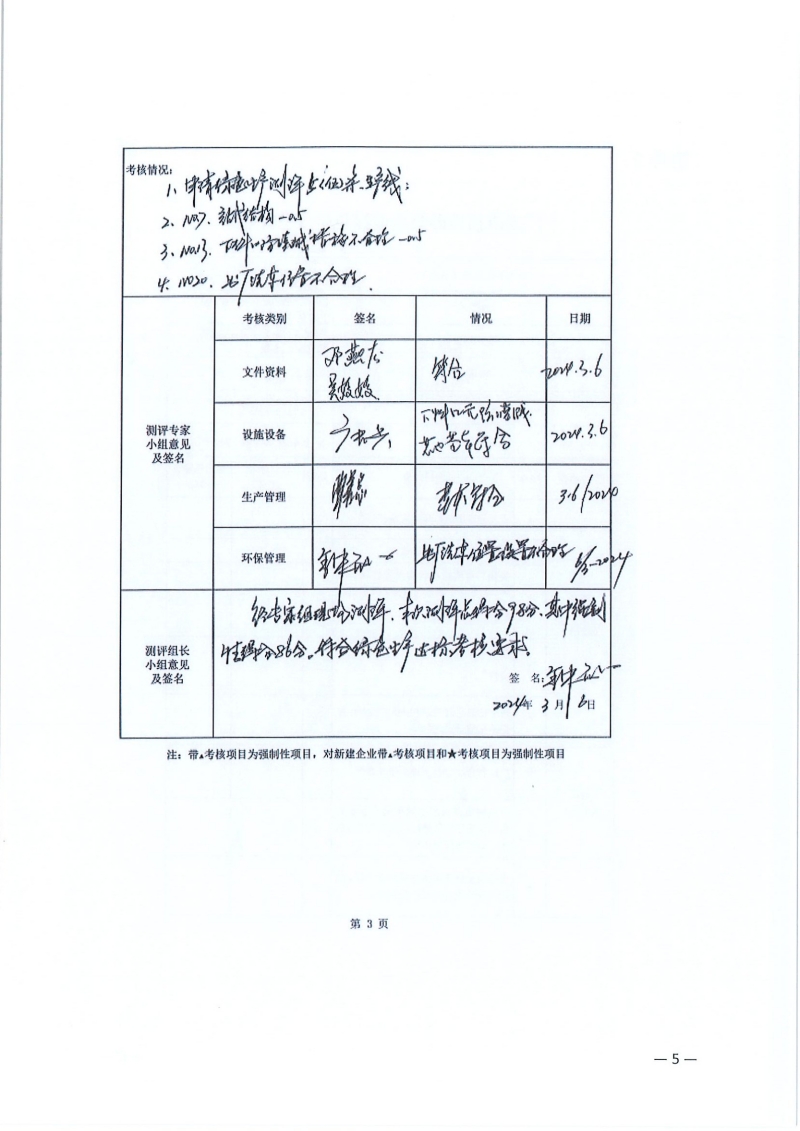 考核情况:
1、申请绿色生产测评
2、No7. 结构 -0.5
3、No13. 下料口 措施不合理 -0.5
4、No20. 出厂洗车位置不合理.
测评专家小组意见及签名
考核类别 签名 情况 日期
文件资料 符合 2024.3.6
设施设备 下料口无 其它基本符合 2024.3.6
生产管理 基本符合 3.6/2024
环保管理 出厂洗车位置设置不合理 6/3-2024
测评组长小组意见及签名
经专家组现场测评,本次测评总得分98分,其中强制
性得分86分。符合绿色生产达标考核要求。
签 名:
2024年 3月 6日
注:带▲考核项目为强制性项目,对新建企业带▲考核项目和★考核项目为强制性项目
第 3 页
— 5 —